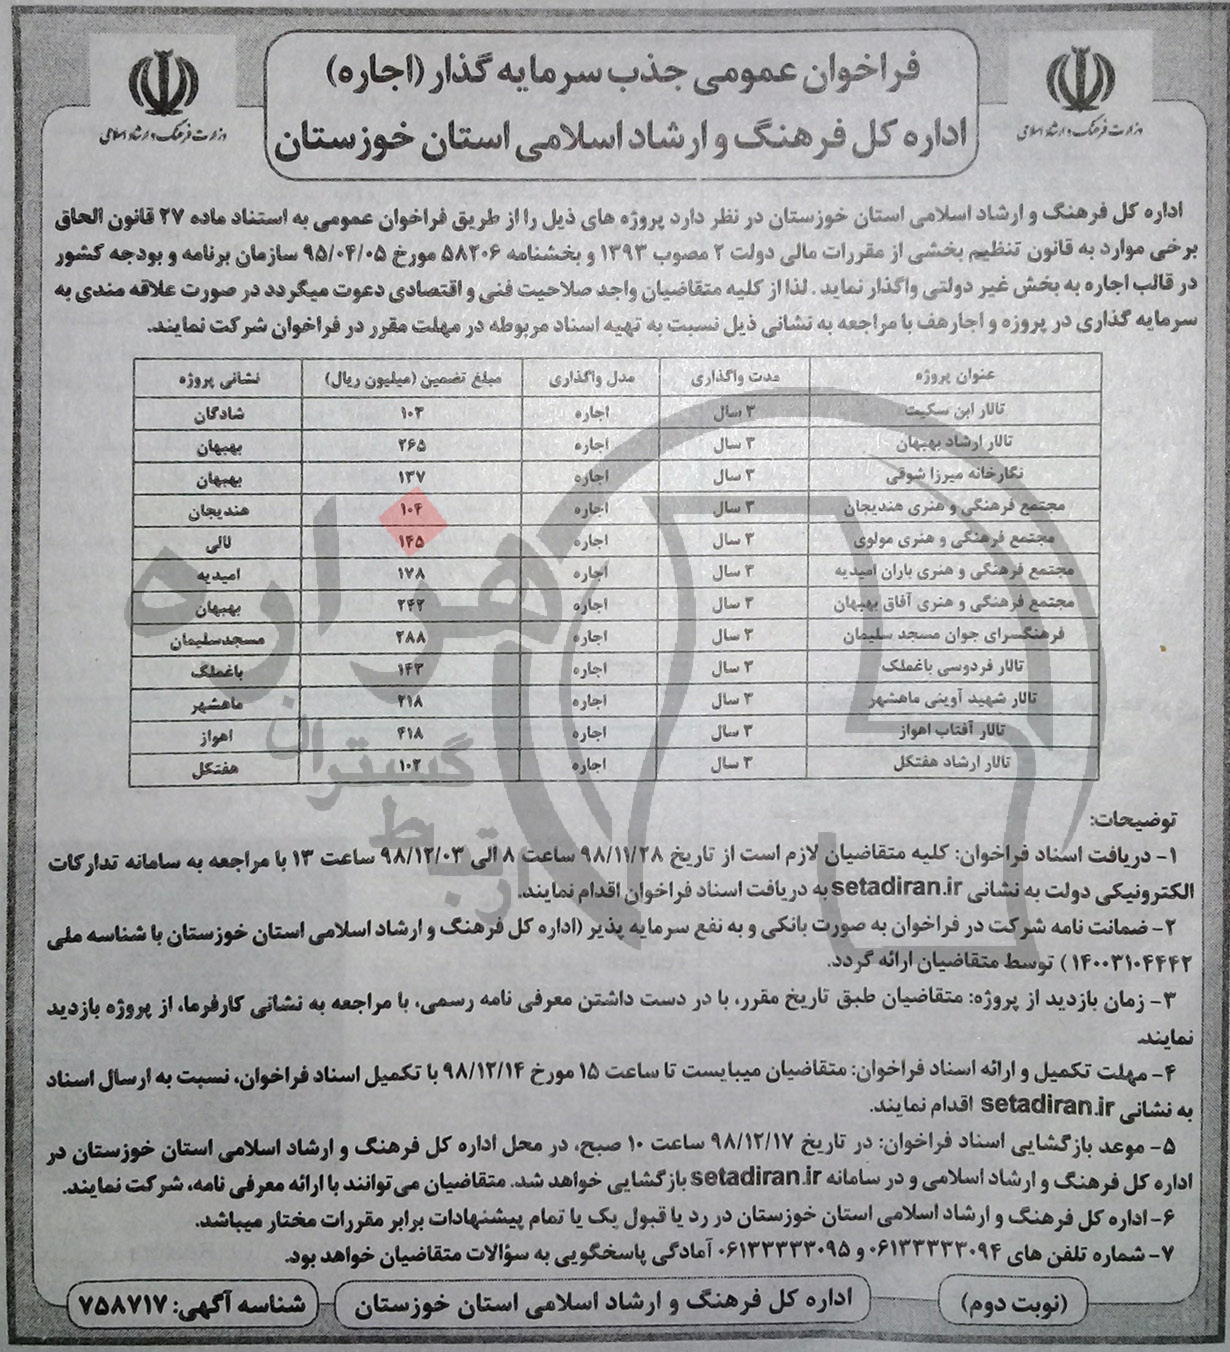 فراخوان عمومی جذب سرمایه گذار (اجاره)
اداره کل فرهنگ و ارشاد اسلامی استان خوزستان
وزارت فرهنگ و ارشاد اسلامی
وزارت فرهنگ و ارشاد اسلامی
اداره کل فرهنگ و ارشاد اسلامی استان خوزستان در نظر دارد پروژه های ذیل را از طریق فراخوان عمومی به استناد ماده ۲۷ قانون الحاق
برخی موارد به قانون تنظیم بخشی از مقررات مالی دولت ۲ مصوب ۱۳۹۳ و بخشنامه ۵۸۲۰۶ مورخ ۹۵/۰۴/۰۵ سازمان برنامه و بودجه کشور
در قالب اجاره به بخش غیر دولتی واگذار نماید. لذا از کلیه متقاضیان واجد صلاحیت فنی و اقتصادی دعوت میگردد در صورت علاقه مندی به
سرمایه گذاری در پروزه و اجارهف با مراجعه به نشانی ذیل نسبت به تهیه اسناد مربوطه در مهلت مقرر در فراخوان شرکت نمایند.
عنوان پروژه مدت واگذاری مدل واگذاری مبلغ تضمین (میلیون ریال) نشانی پروژه
تالار ابن سکیت ۳ سال اجاره ۱۰۴ شادگان
تالار ارشاد بهبهان ۳ سال اجاره ۲۶۵ بهبهان
نگارخانه میرزا شوقی ۳ سال اجاره ۱۳۷ بهبهان
مجتمع فرهنگی و هنری هندیجان ۳ سال اجاره ۱۰۴ هندیجان
مجتمع فرهنگی و هنری مولوی ۳ سال اجاره ۱۴۵ لالی
مجتمع فرهنگی و هنری باران امیدیه ۳ سال اجاره ۱۷۸ امیدیه
مجتمع فرهنگی و هنری آفاق بهبهان ۳ سال اجاره ۲۴۲ بهبهان
فرهنگسرای جوان مسجد سلیمان ۳ سال اجاره ۲۸۸ مسجدسلیمان
تالار فردوسی باغملک ۳ سال اجاره ۱۴۳ باغملک
تالار شهید آوینی ماهشهر ۳ سال اجاره ۲۱۸ ماهشهر
تالار آفتاب اهواز ۳ سال اجاره ۴۱۸ اهواز
تالار ارشاد هفتگل ۳ سال اجاره ۱۰۲ هفتگل
توضیحات:
۱- دریافت اسناد فراخوان: کلیه متقاضیان لازم است از تاریخ ۹۸/۱۱/۲۸ ساعت ۸ الی ۹۸/۱۲/۰۳ ساعت ۱۳ با مراجعه به سامانه تدارکات
الکترونیکی دولت به نشانی setadiran.ir به دریافت اسناد فراخوان اقدام نمایند.
۲- ضمانت نامه شرکت در فراخوان به صورت بانکی و به نفع سرمایه پذیر (اداره کل فرهنگ و ارشاد اسلامی استان خوزستان با شناسه ملی
۱۴۰۰۳۱۰۴۴۴۲) توسط متقاضیان ارائه گردد.
۳- زمان بازدید از پروژه: متقاضیان طبق تاریخ مقرر، با در دست داشتن معرفی نامه رسمی، با مراجعه به نشانی کارفرما، از پروژه بازدید
نمایند.
۴- مهلت تکمیل و ارائه اسناد فراخوان: متقاضیان میبایست تا ساعت ۱۵ مورخ ۹۸/۱۲/۱۴ با تکمیل اسناد فراخوان، نسبت به ارسال اسناد
به نشانی setadiran.ir اقدام نمایند.
۵- موعد بازگشایی اسناد فراخوان: در تاریخ ۹۸/۱۲/۱۷ ساعت ۱۰ صبح، در محل اداره کل فرهنگ و ارشاد اسلامی استان خوزستان در
اداره کل فرهنگ و ارشاد اسلامی و در سامانه setadiran.ir بازگشایی خواهد شد. متقاضیان می توانند با ارائه معرفی نامه، شرکت نمایند.
۶- اداره کل فرهنگ و ارشاد اسلامی استان خوزستان در رد یا قبول یک یا تمام پیشنهادات برابر مقررات مختار میباشد.
۷- شماره تلفن های ۰۶۱۳۳۳۳۳۰۹۴ و ۰۶۱۳۳۳۳۳۰۹۵ آمادگی پاسخگویی به سؤالات متقاضیان خواهد بود.
(نوبت دوم)
اداره کل فرهنگ و ارشاد اسلامی استان خوزستان
شناسه آگهی: ۷۵۸۷۱۷
هزاره
ارتباط گستران